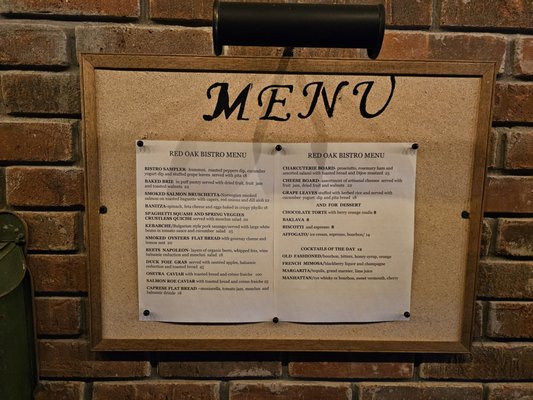 MENU
RED OAK BISTRO MENU
BISTRO SAMPLER- hummus, roasted peppers dip, cucumber
yogurt dip and stuffed grape leaves served with pita 18
BAKED BRIE in puff pastry served with dried fruit, fruit jam
and toasted walnuts 22
SMOKED SALMON BRUSCHETTA-Norwegian smoked
salmon on toasted baguette with capers, red onions and aioli 21
BANITZA-spinach, feta cheese and eggs baked in crispy phyllo 18
SPAGHETTI SQUASH AND SPRING VEGGIES
CRUSTLESS QUICHE served with mesclun salad 20
KEBABCHE/Bulgarian style pork sausage/served with large white
beans in tomato sauce and cucumber salad
SMOKED OYSTERS FLAT BREAD with gourmet cheese and
lemon zest 20
BEETS NAPOLEON- layers of organic beets, whipped feta, wine
balsamic reduction and mesclun salad 18
DUCK FOIE GRAS served with sauteed apples, balsamic
reduction and toasted bread 25
OSETRA CAVIAR with toasted bread and crème fraiche 100
SALMON ROE CAVIAR with toasted bread and crème fraiche 25
CAPRESE FLAT BREAD -mozzarella, tomato jam, mesclun and
balsamic drizzle 18
RED OAK BISTRO MENU
CHARCUTERIE BOARD- prosciutto, rosemary ham and
assorted salami with toasted bread and Dijon mustard 25
CHEESE BOARD -assortment of artisanal cheeses served with
fruit jam, dried fruit and walnuts 22
GRAPE LEAVES stuffed with herbed rice and served with
cucumber yogurt dip and pita bread 18
AND FOR DESSERT
CHOCOLATE TORTE with berry orange coulis 8
BAKLAVA 8
BISCOTTI and espresso 8
AFFOGATO/ ice cream, espresso, bourbon/ 14
COCKTAILS OF THE DAY 12
OLD FASHIONED/bourbon, bitters, honey syrup, orange
FRENCH MIMOSA/blackberry liquor and champagne
MARGARITA/tequila, grand marnier, lime juice
MANHATTAN/rye whisky or bourbon, sweet vermouth, cherry